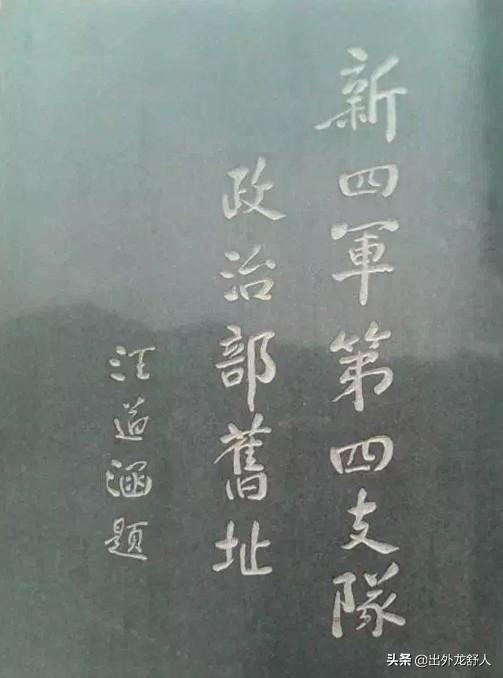 新四軍第四支隊
政治部舊址
汪道涵題
头条 @出外龙舒人